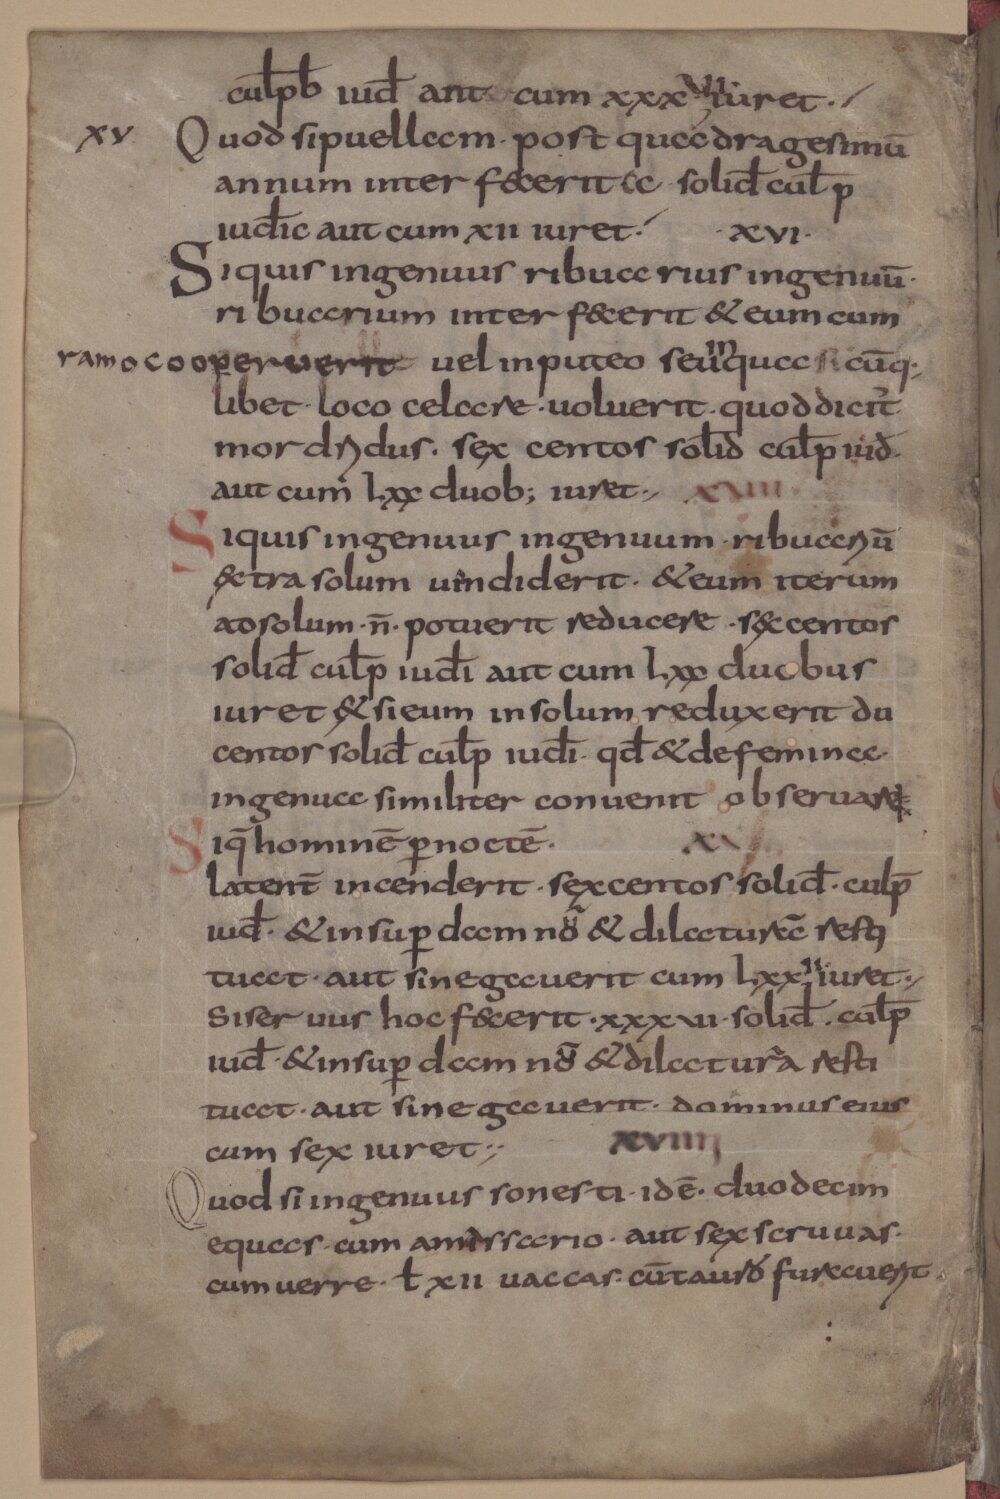 cul̄pb̄ iud̄ aut cum xxxvi iuret·
xv Quod si puellam· post quadragesimū
annum interfecerit cc· solid̄ cul̄p
iud̄ic aut cum xii iuret· ·xvi·
Siquis ingenuus ribuarius ingenuū·
ribuarium interfecerit & eum cum
ramo cooperuerit uel in puteo seu in quacūq;
libet· loco celare· uoluerit· quod dicit̄
mordridus· sex centos solid̄ cul̄p iud̄·
aut cum lxx duob; iuret· xviii
Siquis ingenuus ingenuum· ribuariū
extra solum uindiderit· & eum iterum
ad solum· n̄· potuerit reducere· sexcentos
solid̄ cul̄p iud̄i aut cum lxx duobus
iuret & si eum in solum reduxerit du
centos solid̄ cul̄p iud̄i· qd̄ & de femina·
ingenua similiter conuenit obseruare
Siq̄ hominē p̱ noctē·
latent̄ incenderit· sexcentos solid̄· culp̄
iud̄· & insup̱ damnū & dilaturā resti
tuat· aut si negauerit cum lxxii iuret·
Si seruus hoc fecerit· xxxvi· solid̄· cul̄p
iud̄· & insup̱ damnū & dilatura resti
tuat· aut si negauerit· dominus eius
cum sex iuret· xviiii
Quod si ingenuus sonesti· idē· duodecim
equas· cum amissario· aut sex scruuas·
cum uerre· l̄ xii uaccas· cū tauro furauerit